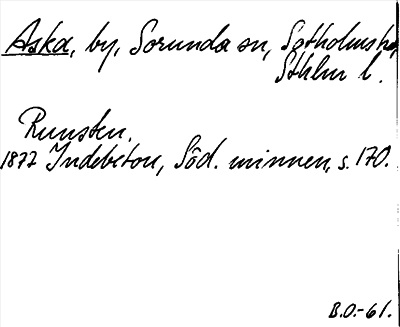 Aska, by, Sorunda sn, Sotholms hd,
Sthlm l.
Runsten.
1877 Indebetou, Söd. minnen, s. 170.
B.O.-61.